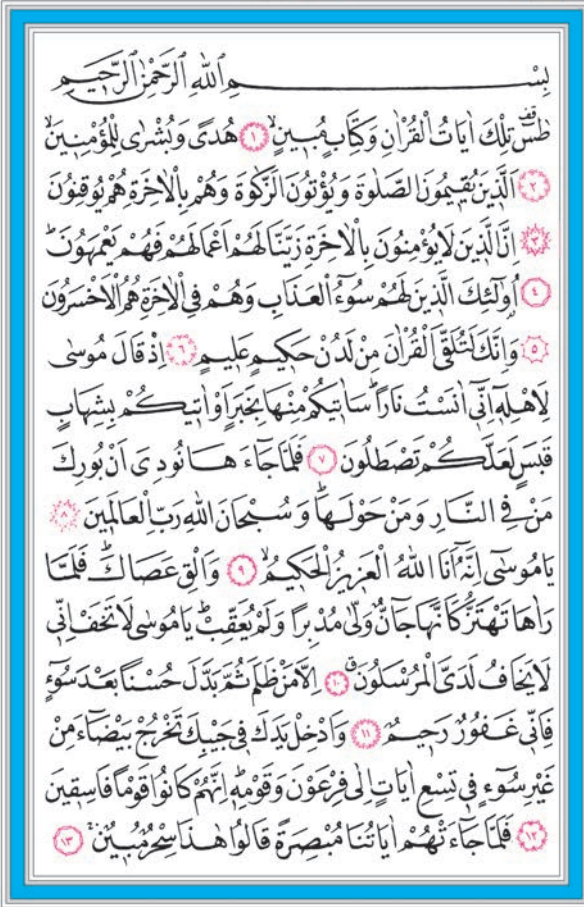 بِسْمِ اللّٰهِ الرَّحْمٰنِ الرَّحٖيمِ
طٰسٓ تِلْكَ اٰيَاتُ الْقُرْاٰنِ وَكِتَابٍ مُبٖينٍۙ ﴿١﴾ هُدًى وَبُشْرٰى لِلْمُؤْمِنٖينَۙ
﴿٢﴾ اَلَّذٖينَ يُقٖيمُونَ الصَّلٰوةَ وَيُؤْتُونَ الزَّكٰوةَ وَهُمْ بِالْاٰخِرَةِ هُمْ يُوقِنُونَ
﴿٣﴾ اِنَّ الَّذٖينَ لَا يُؤْمِنُونَ بِالْاٰخِرَةِ زَيَّنَّا لَهُمْ اَعْمَالَهُمْ فَهُمْ يَعْمَهُونَۜ
﴿٤﴾ اُولٰٓئِكَ الَّذٖينَ لَهُمْ سُٓوءُ الْعَذَابِ وَهُمْ فِي الْاٰخِرَةِ هُمُ الْاَخْسَرُونَ
﴿٥﴾ وَاِنَّكَ لَتُلَقَّى الْقُرْاٰنَ مِنْ لَدُنْ حَكٖيمٍ عَلٖيمٍ ﴿٦﴾ اِذْ قَالَ مُوسٰى
لِاَهْلِهٖٓ اِنّٖٓي اٰنَسْتُ نَارًاۜ سَاٰتٖيكُمْ مِنْهَا بِخَبَرٍ اَوْ اٰتٖيكُمْ بِشِهَابٍ
قَبَسٍ لَعَلَّكُمْ تَصْطَلُونَ ﴿٧﴾ فَلَمَّا جَٓاءَهَا نُودِيَ اَنْ بُورِكَ
مَنْ فِي النَّارِ وَمَنْ حَوْلَهَاۜ وَسُبْحَانَ اللّٰهِ رَبِّ الْعَالَمٖينَ ﴿٨﴾
يَا مُوسٰٓى اِنَّهُٓ اَنَا اللّٰهُ الْعَزٖيزُ الْحَكٖيمُۙ ﴿٩﴾ وَاَلْقِ عَصَاكَۜ فَلَمَّا
رَاٰهَا تَهْتَزُّ كَاَنَّهَا جَٓانٌّ وَلّٰى مُدْبِرًا وَلَمْ يُعَقِّبْۜ يَا مُوسٰى لَا تَخَفْ اِنّٖي
لَا يَخَافُ لَدَيَّ الْمُرْسَلُونَۗ ﴿١٠﴾ اِلَّا مَنْ ظَلَمَ ثُمَّ بَدَّلَ حُسْنًا بَعْدَ سُٓوءٍ
فَاِنّٖي غَفُورٌ رَحٖيمٌ ﴿١١﴾ وَاَدْخِلْ يَدَكَ فٖي جَيْبِكَ تَخْرُجْ بَيْضَٓاءَ مِنْ
غَيْرِ سُٓوءٍ فٖي تِسْعِ اٰيَاتٍ اِلٰى فِرْعَوْنَ وَقَوْمِهٖۜ اِنَّهُمْ كَانُوا قَوْمًا فَاسِقٖينَ
﴿١٢﴾ فَلَمَّا جَٓاءَتْهُمْ اٰيَاتُنَا مُبْصِرَةً قَالُوا هٰذَا سِحْرٌ مُبٖينٌۚ ﴿١٣﴾